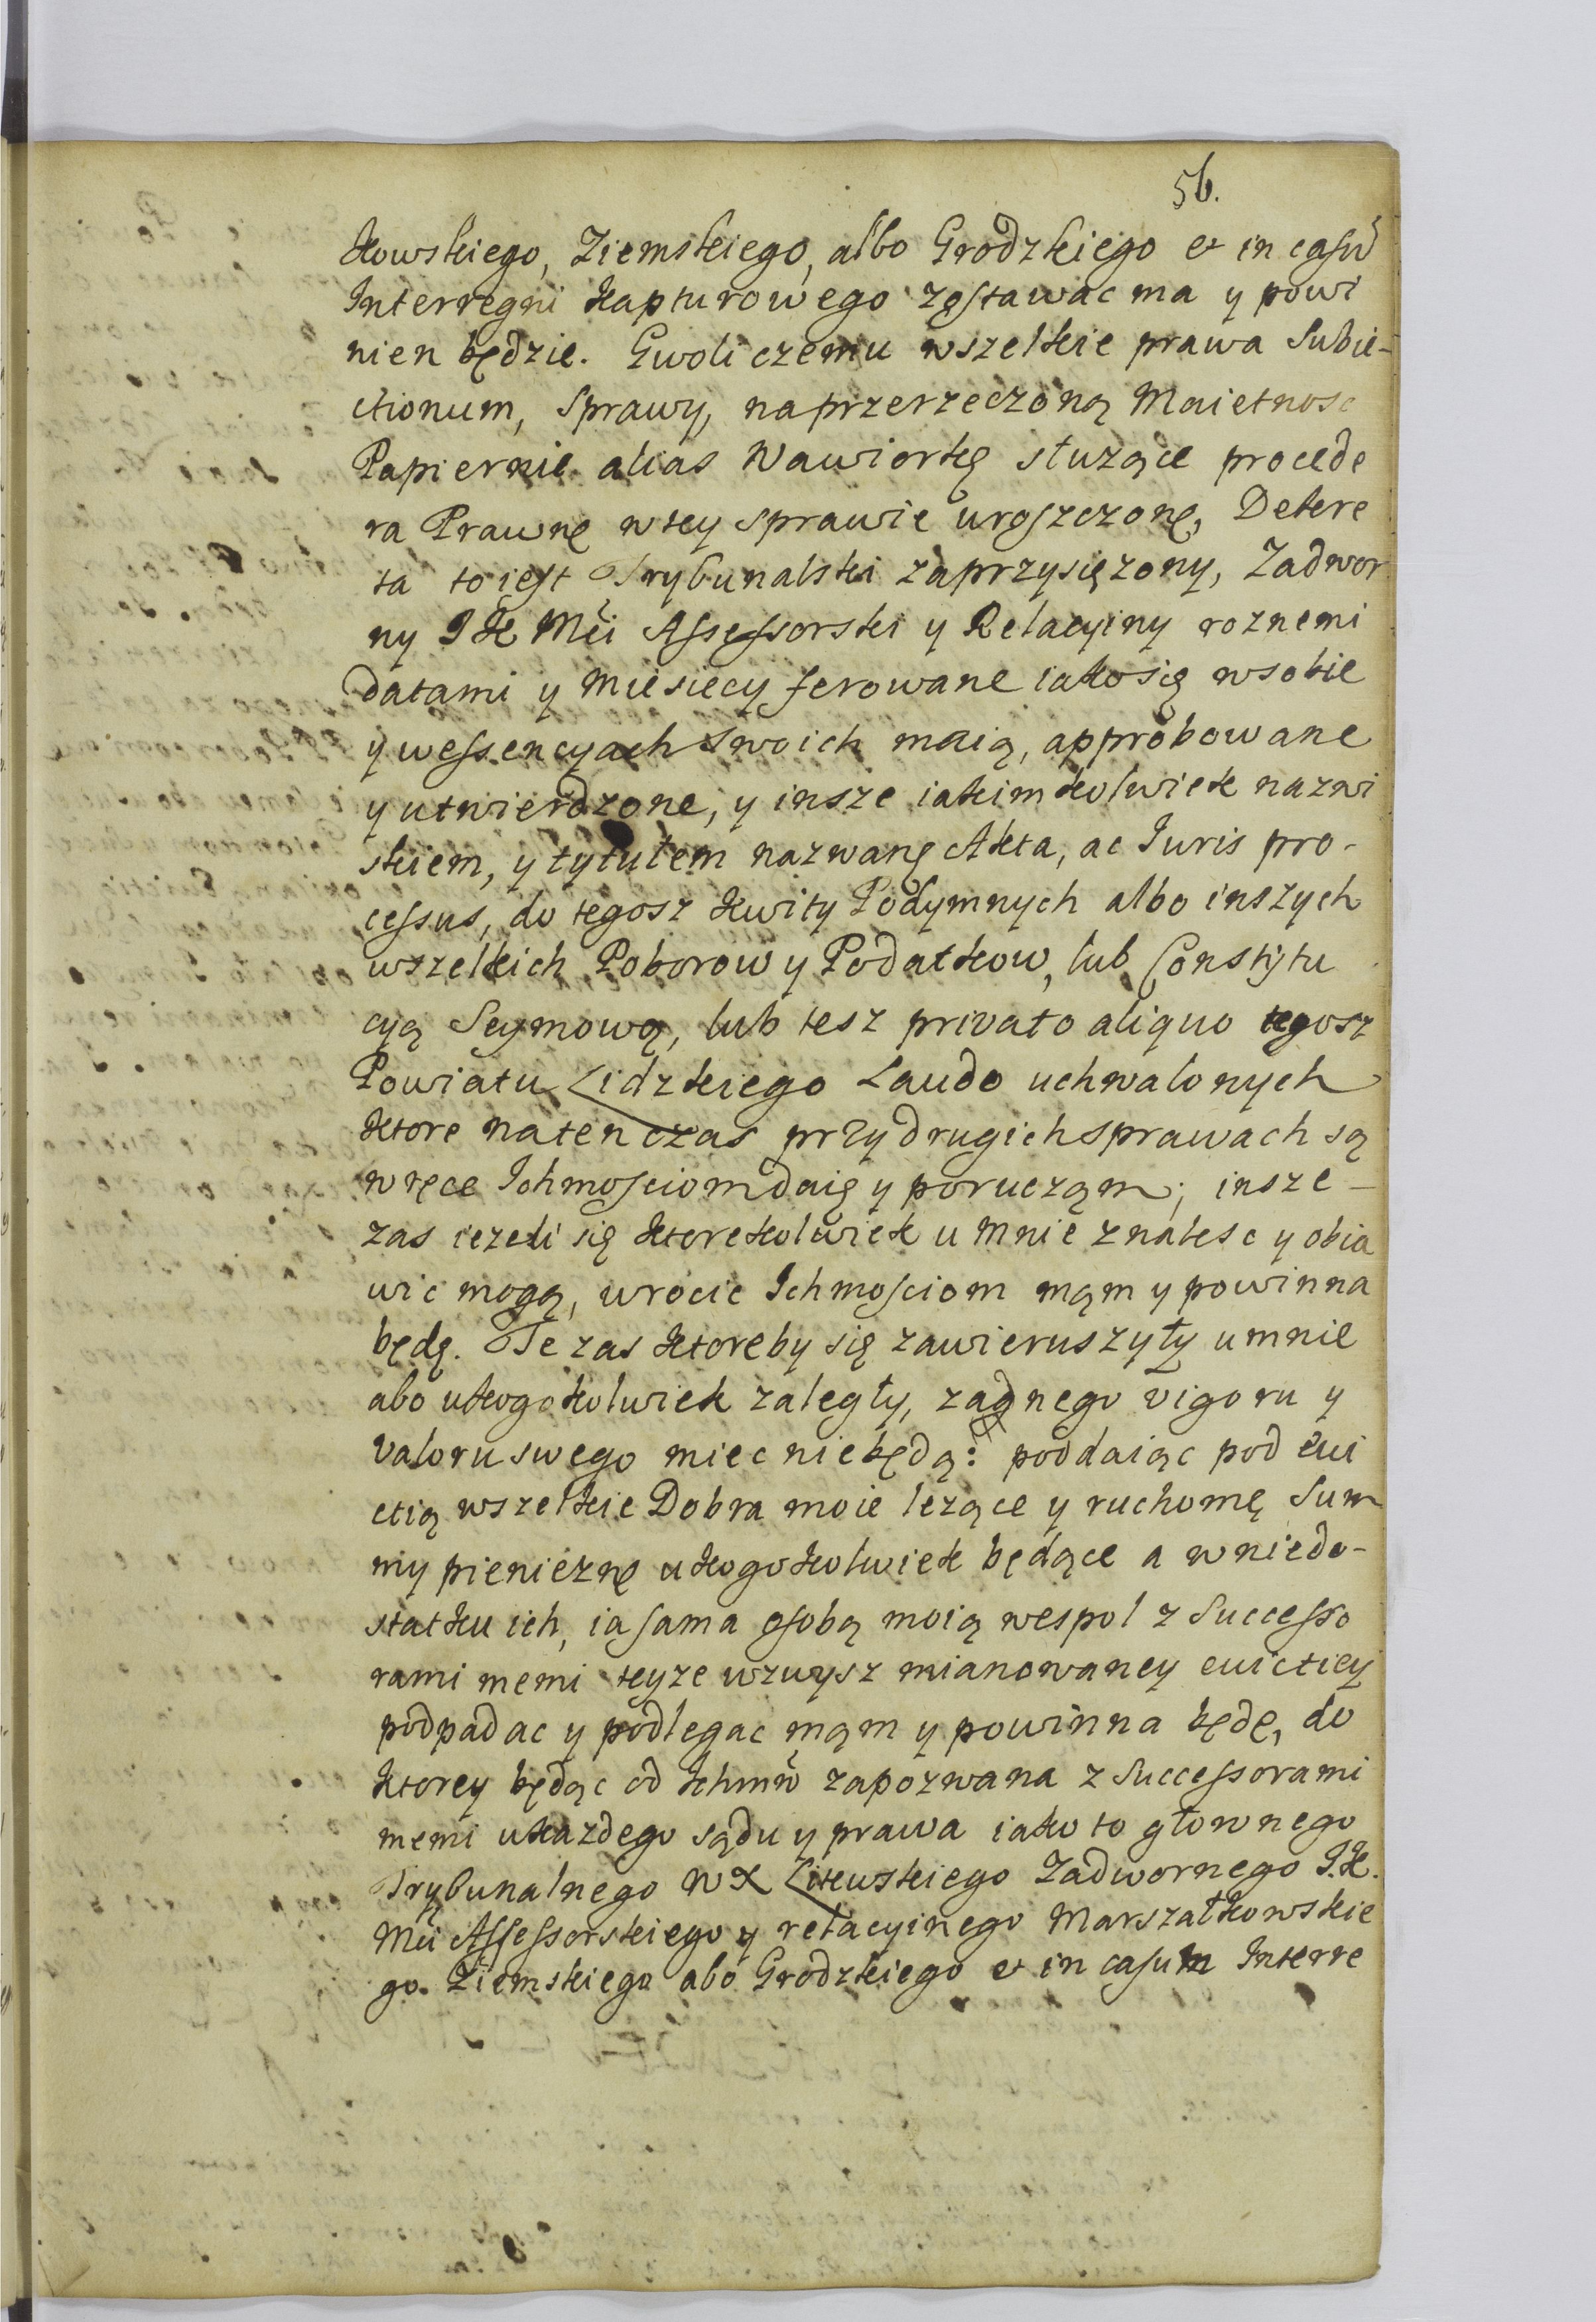 56.
kowskiego, Ziemskiego, albo Grodzkiego et in casu
Interregni Kapturowego zostawac ma y powi
nien będzie. Gwoli czemu wszelkie prawa Subie-
ctionum, Sprawy, na przerzeczoną Maietnosc
Papiernie alias Wawiorkę słuzące procede
ra Prawnę w tey sprawie uroszczonę, Dekre
ta to iest Trybunalski zaprzysięzony, Zadwor
ny J K Mci Assessorski y Relacyiny roznemi
datami y Miesiecy ferowane iako się w sobie
y w essencyach swoich maią, approbowane
y utwierdzone, y insze iakimkolwiek nazwi
skiem, y tytułem nazwanę Akta, ac Juris pro-
cessus, do tegosz kwity Podymnych albo inszych
wszelkich Poborow y Podatkow, lub Constytu
cyą Seymową, lub tesz privato aliquo tegosz
Powiatu Lidzkiego Laudo uchwalonych
ktore natenczas przy drugich sprawach są
w ręce Ichmosciom daię y porucząm; insze-
zas iezeli się ktorekolwiek u mnie znalesc y obia
wic mogą, wrocic Ichmosciom mąm y powinna
będę. Te zas ktoreby się zawieruszyły u mnie
abo u kogokolwiek zaległy, zadnego vigoru y
valoru swego miec niebędą: poddaiąc pod evi
ctią wszelkie Dobra moie lezące y ruchomę Sum
my pieniezne u kogokolwiek będące a w niedo-
statku ich, ia sama osobą moią wespol z Successo
rami memi teyze wzwysz mianowaney evictiey
podpadac y podlegac mąm y powinna będę, do
ktorey będąc od Ichmw zapozwana z Successorami
memi u kazdego sądu y prawa iako to głownego
Trybunalnego W X Litewskiego Zadwornego J. K.
Mci Assessorskiego y relacyinego Marszałkowskie
go. Ziemskiego abo Grodzkiego et in casum Interre